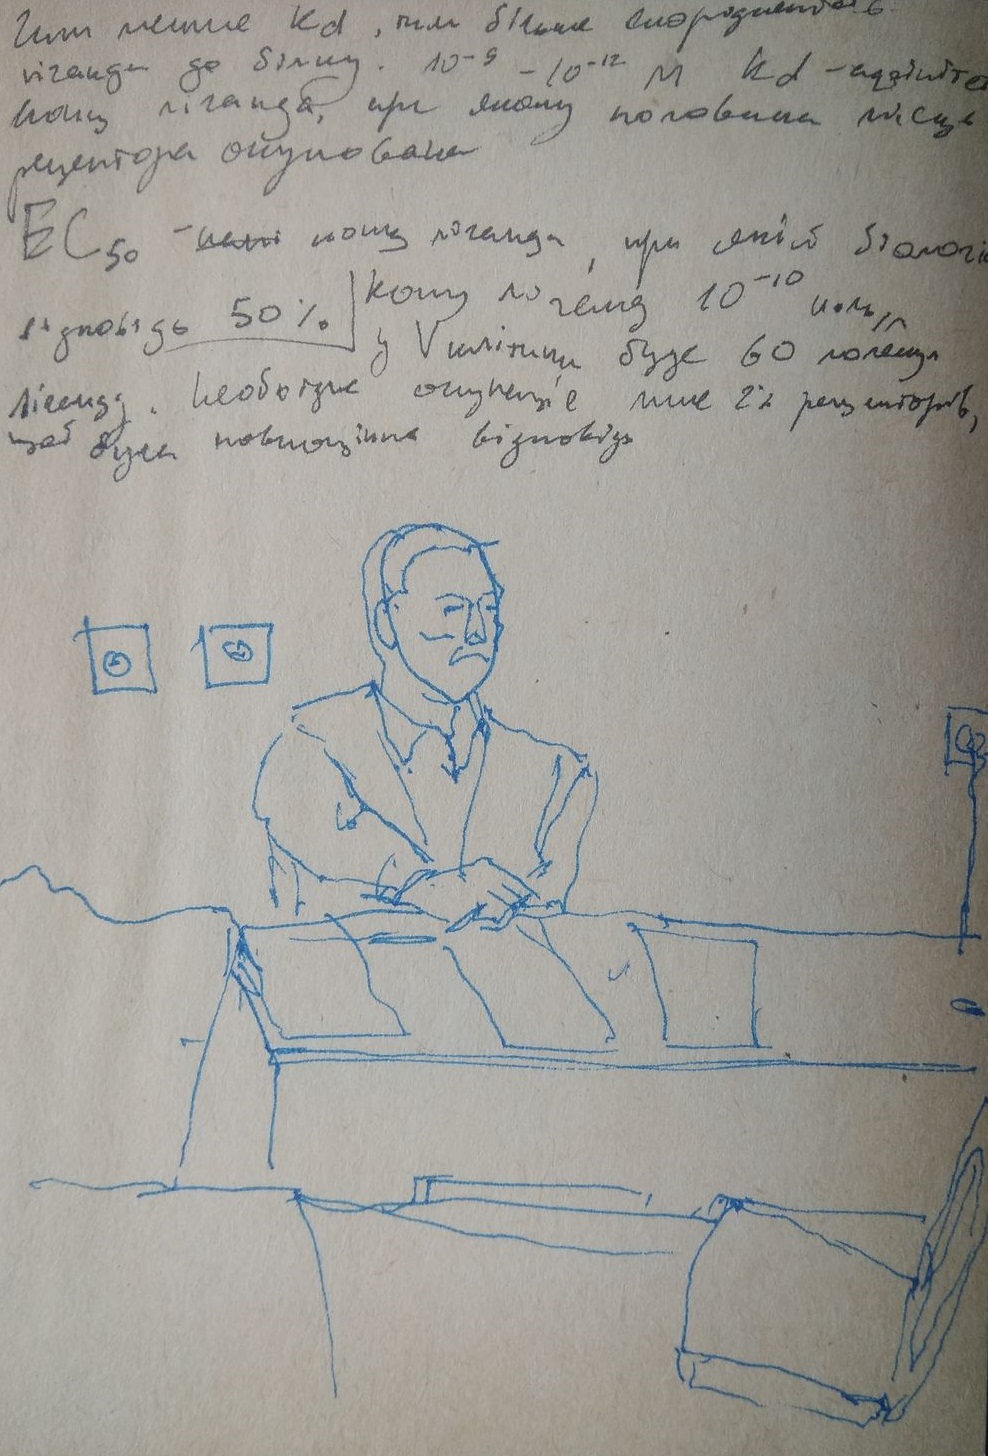 Чим менше Kd, тим більше спорідненість
ліганда до білку. 10⁻⁹ - 10⁻¹² М Kd -
конц ліганда, при якому половина місць
рецептора окупована
EC₅₀ - конц ліганда, при якій біологіч
відповідь 50% | конц ліганду 10⁻¹⁰ моль/л
у V клітини буде 60 молекул
ліганду. Необхідне окупація лише 2% рецепторів,
щоб була повноцінна відповідь